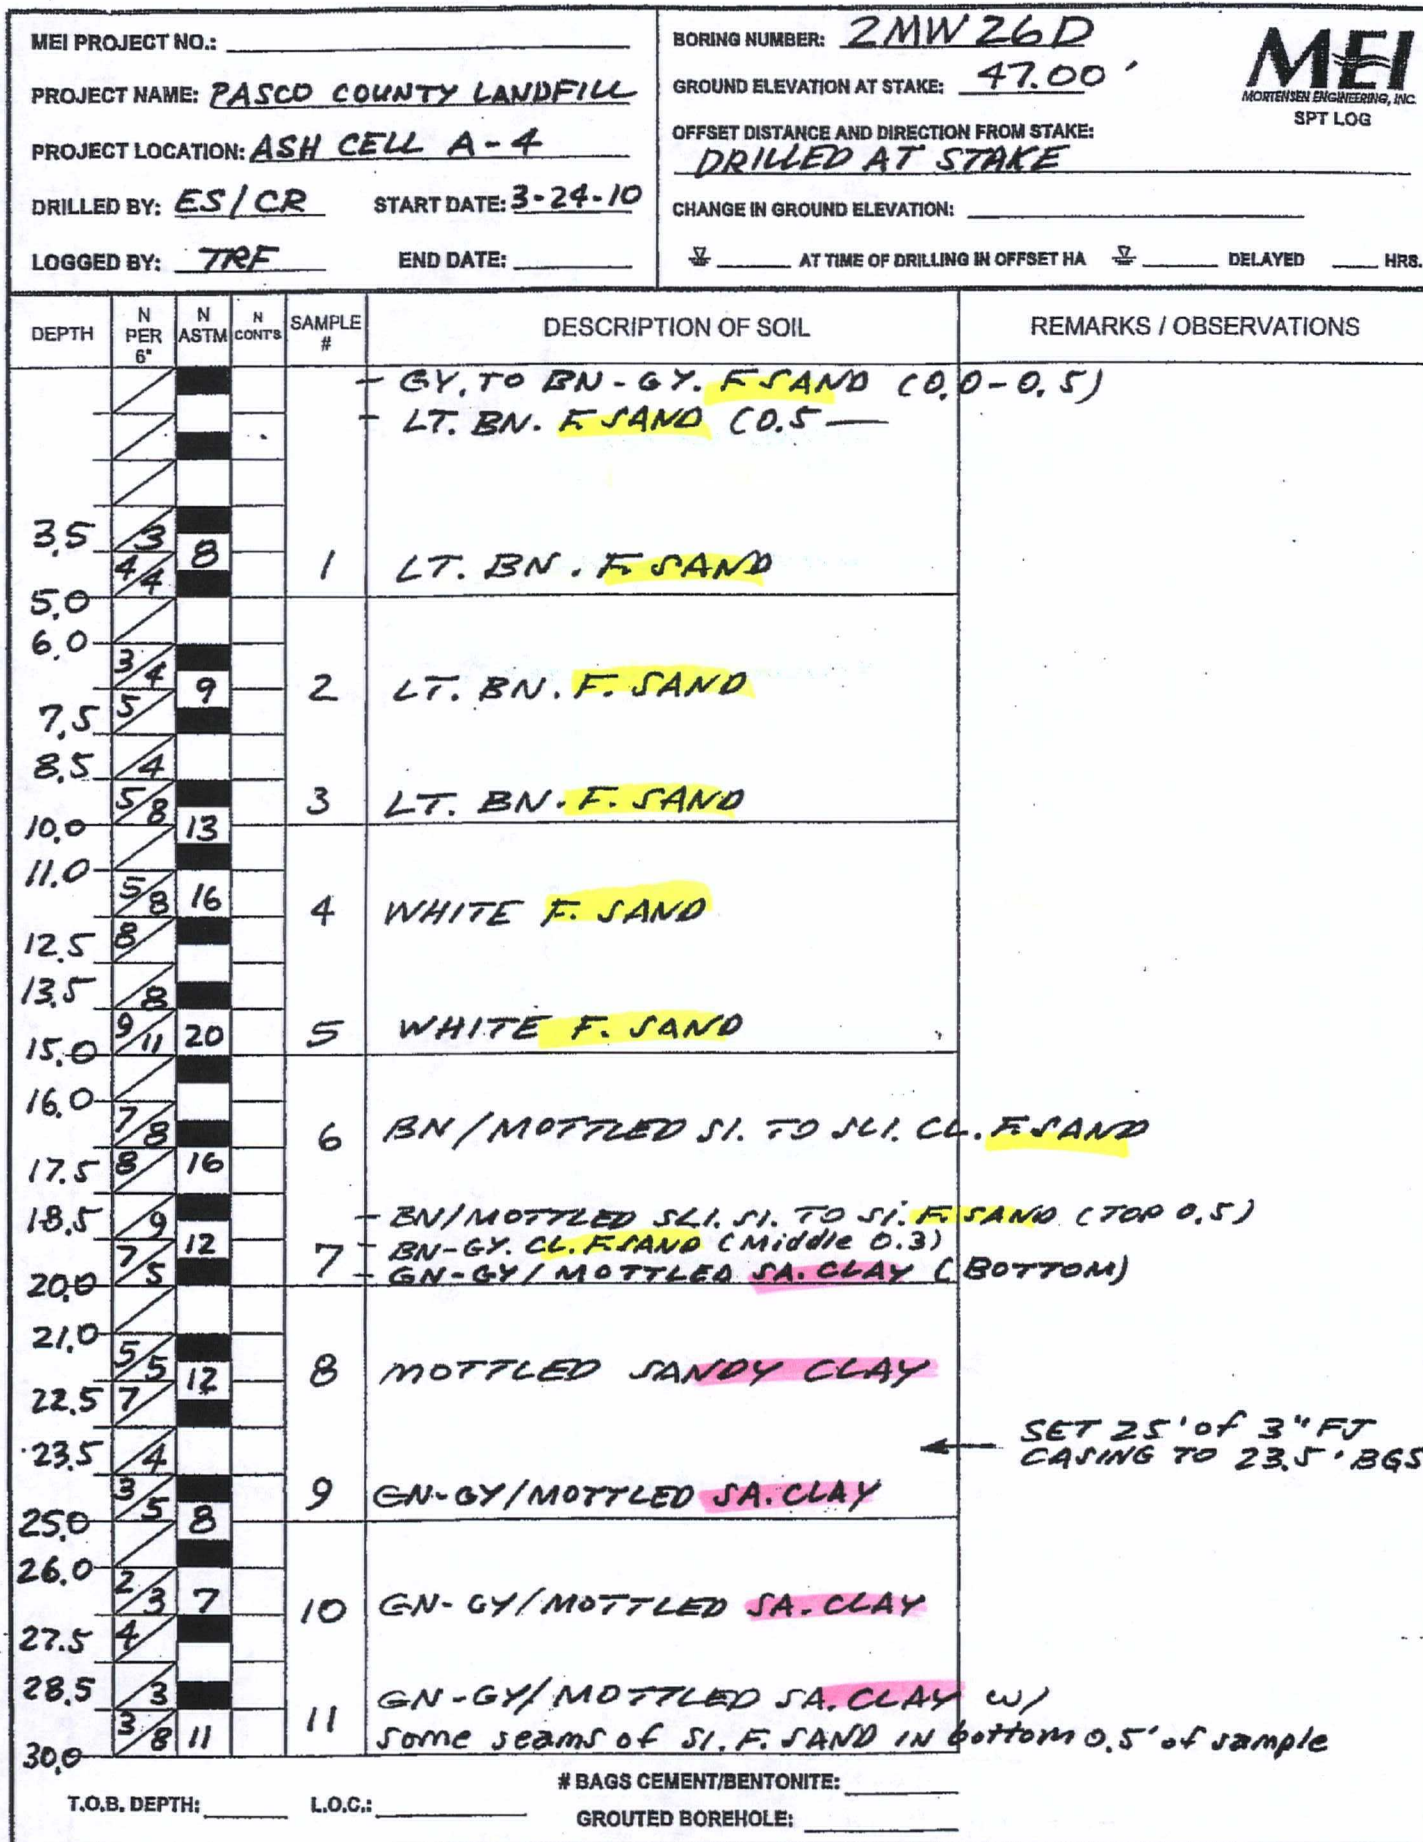 MEI PROJECT NO.:
PROJECT NAME: PASCO COUNTY LANDFILL
PROJECT LOCATION: ASH CELL A-4
DRILLED BY: ES/CR START DATE: 3-24-10
LOGGED BY: TRF END DATE:
BORING NUMBER: 2MW26D
GROUND ELEVATION AT STAKE: 47.00'
OFFSET DISTANCE AND DIRECTION FROM STAKE:
DRILLED AT STAKE
CHANGE IN GROUND ELEVATION:
AT TIME OF DRILLING IN OFFSET HA DELAYED HRS.
MEI
MORTENSEN ENGINEERING, INC.
SPT LOG
DEPTH N PER 6" N ASTM N CONT'S SAMPLE # DESCRIPTION OF SOIL REMARKS / OBSERVATIONS
- GY. TO BN-GY. F SAND (0.0-0.5)
- LT. BN. F. SAND (0.5 —
3.5 3
4/4 8 1 LT. BN. F. SAND
5.0
6.0
3/4 9 2 LT. BN. F. SAND
7.5 5
8.5 4
5/8 3 LT. BN. F. SAND
10.0 13
11.0
5/8 16 4 WHITE F. SAND
12.5 8
13.5 8
9/11 20 5 WHITE F. SAND
15.0
16.0
7/8 6 BN/MOTTLED SI. TO SLI. CL. F. SAND
17.5 8 16
18.5 9 - BN/MOTTLED SLI. SI. TO SI. F. SAND (TOP 0.5)
12 7 - BN-GY. CL. F. SAND (Middle 0.3)
7/5 - GN-GY/MOTTLED SA. CLAY (BOTTOM)
20.0
21.0
5/5 12 8 MOTTLED SANDY CLAY
22.5 7
SET 25' of 3" FJ
23.5 4 CASING TO 23.5' BGS
3/5 9 GN-GY/MOTTLED SA. CLAY
25.0 8
26.0
2/3 7 10 GN-GY/MOTTLED SA. CLAY
27.5 4
28.5 3 GN-GY/MOTTLED SA. CLAY w/
3/8 11 11 some seams of SI. F. SAND IN bottom 0.5' of sample
30.0
# BAGS CEMENT/BENTONITE:
T.O.B. DEPTH: L.O.C.:
GROUTED BOREHOLE: